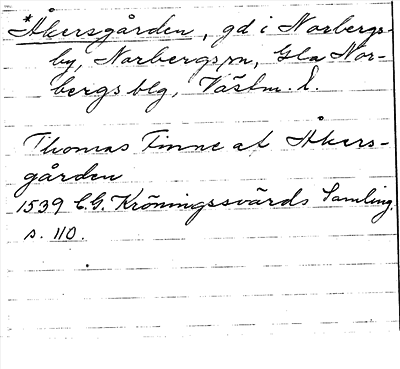 *Åkersgården, gd i Norbergs-
by, Norbergs sn, Gla Nor-
bergs blg, Västm. l.
Thomas Finne at Åkers-
gården
1539 C.G. Kröningssvärds Samling.
s. 110.